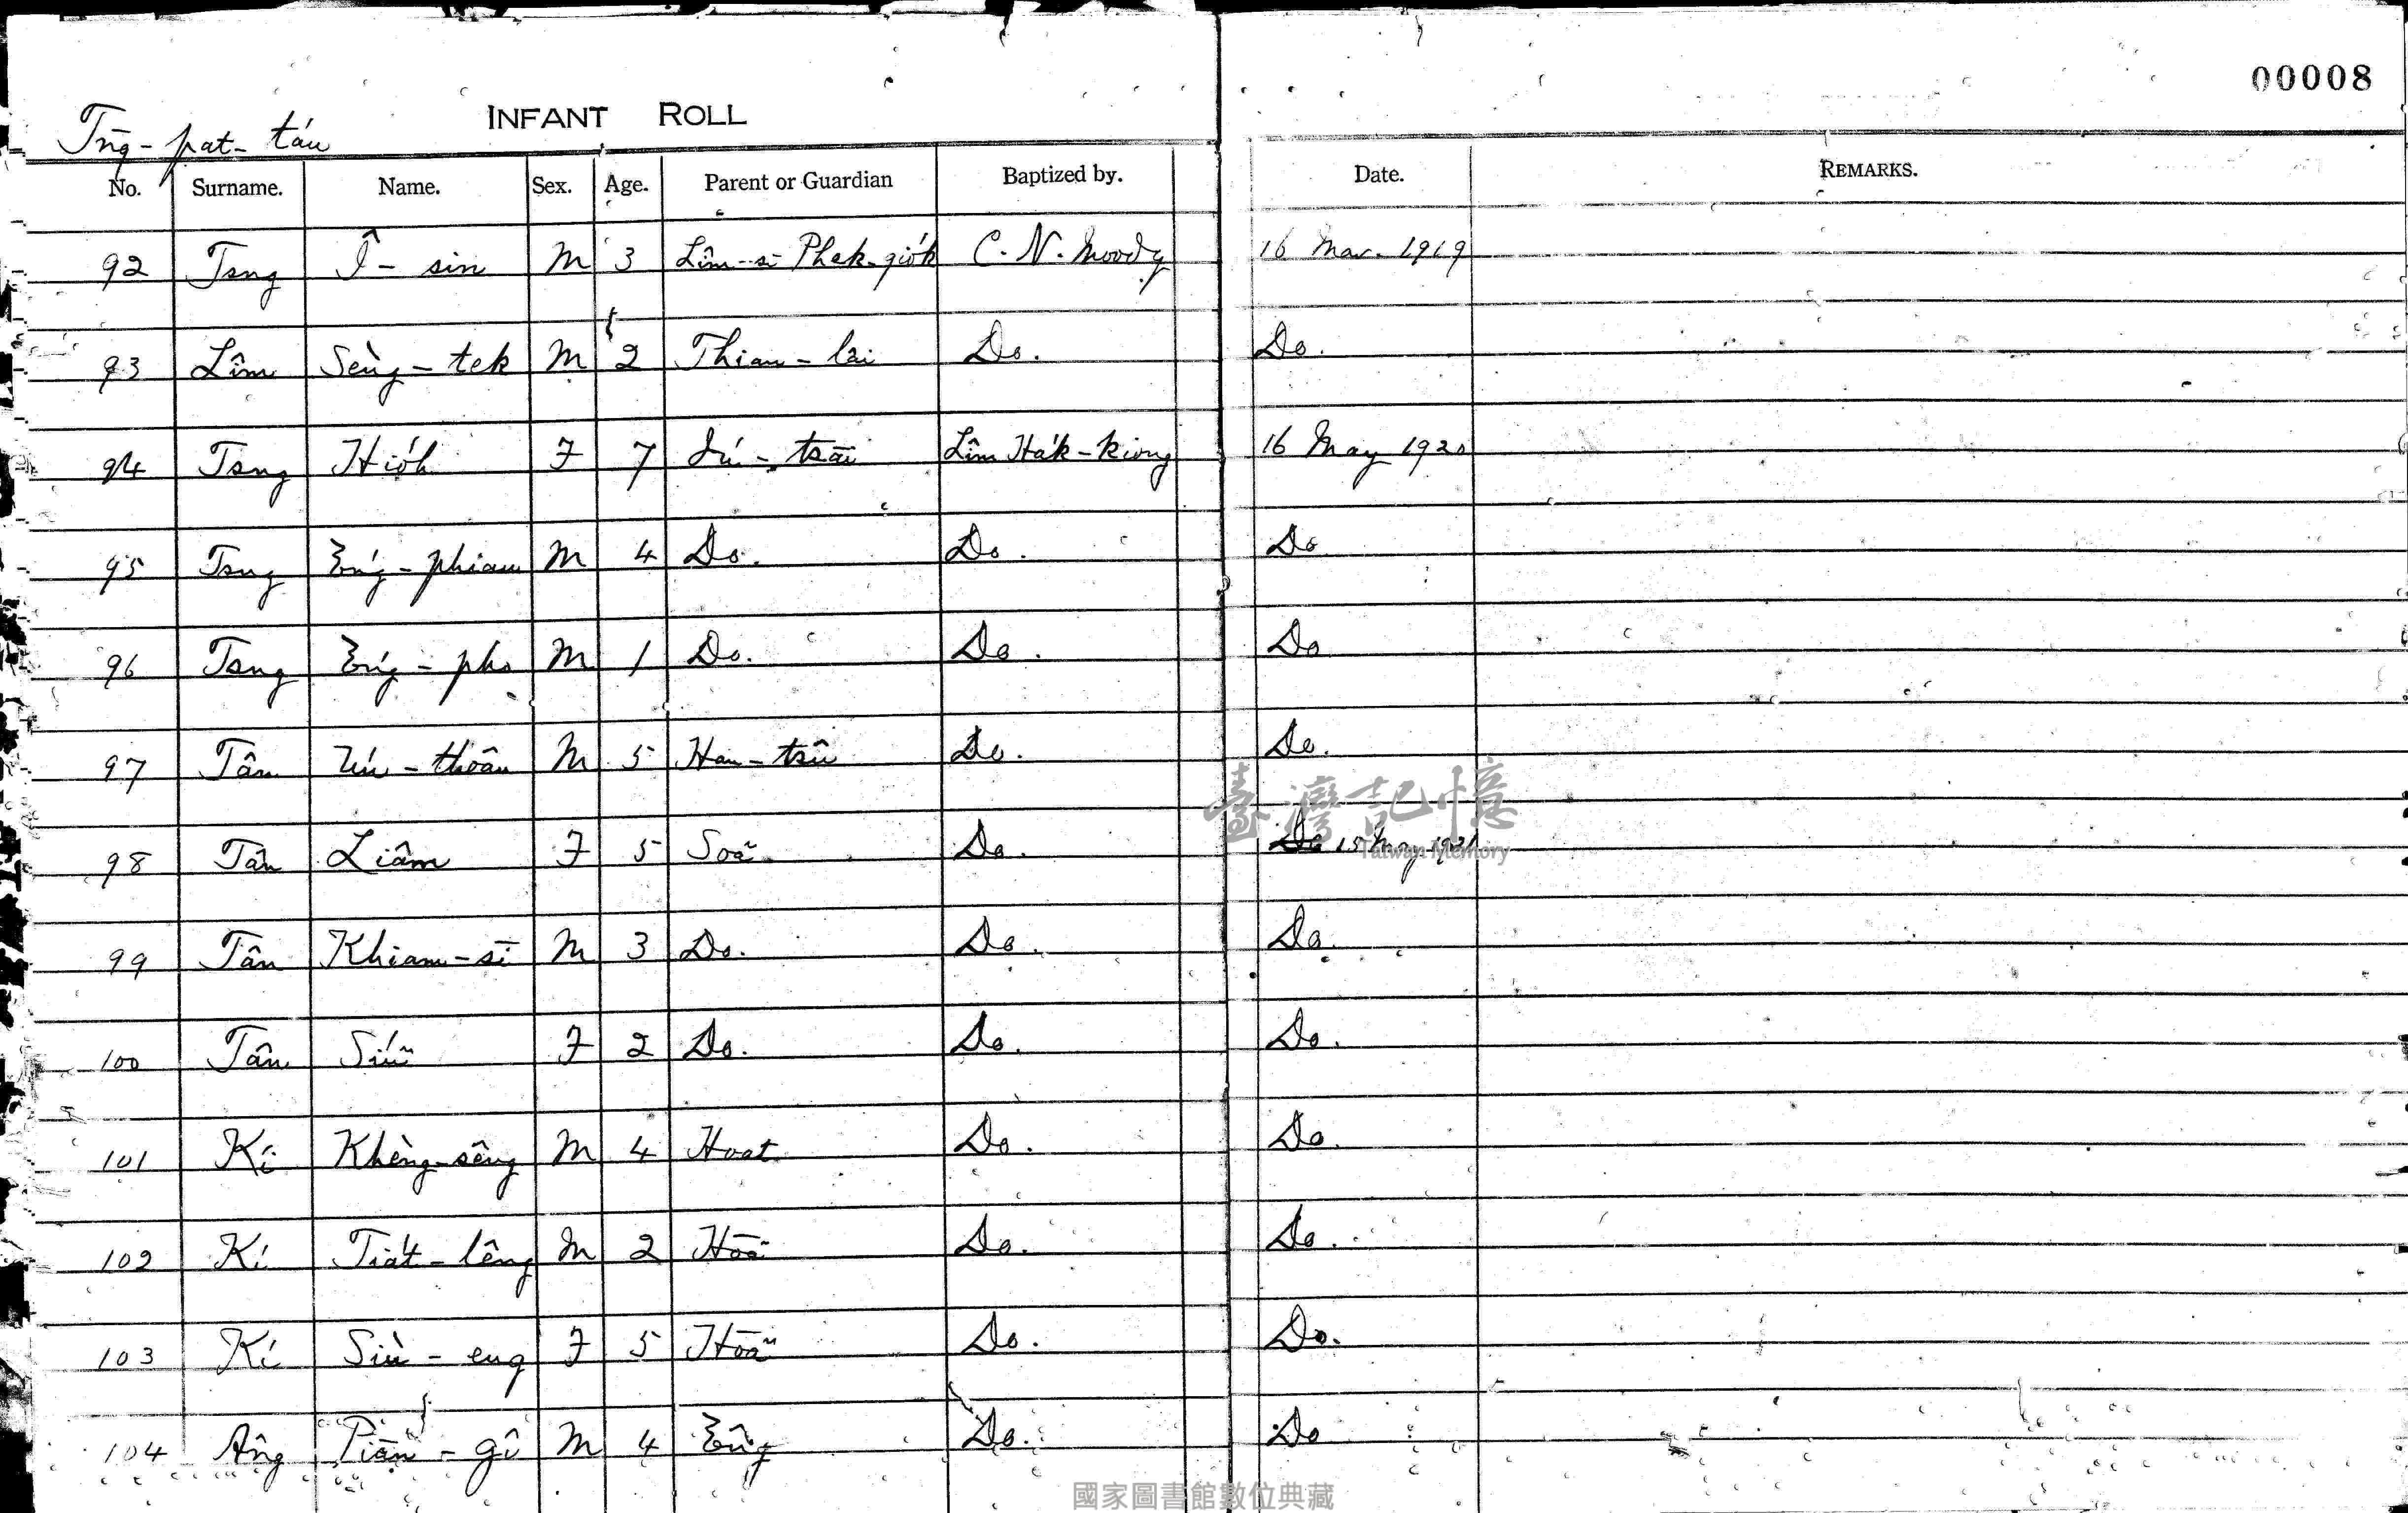 00008
INFANT ROLL
Tn̄g-pat-táu
No. Surname. Name. Sex. Age. Parent or Guardian Baptized by. Date. REMARKS.
92 Tsng Î-sin M 3 Lîm-sī Phek-gio̍k C. N. Moody 16 Mar. 1919
93 Lîm Sèng-tek M 2 Thian-lâi Do. Do.
94 Tsng Hio̍h F 7 tsāi Lîm Ha̍k-kiong 16 May 1920
95 Tsng Éng-phiau M 4 Do. Do. Do
96 Tsng Éng-pho M 1 Do. Do. Do
97 Tân Ún-thoân M 5 Han-tsû Do. Do.
98 Tân Liâm F 5 Soaⁿ Do. Do 15 May 1921
99 Tân Khiam-sī M 3 Do. Do. Do.
100 Tân Siúⁿ F 2 Do. Do. Do.
101 Kí Khèng-sêng M 4 Hoat Do. Do.
102 Kí Tia̍t-lêng M 2 Hōaⁿ Do. Do.
103 Kí Siù-eng F 5 Hōaⁿ Do. Do.
104 Âng Piān-gî M 4 Êng Do. Do
臺灣記憶
Taiwan Memory
國家圖書館數位典藏